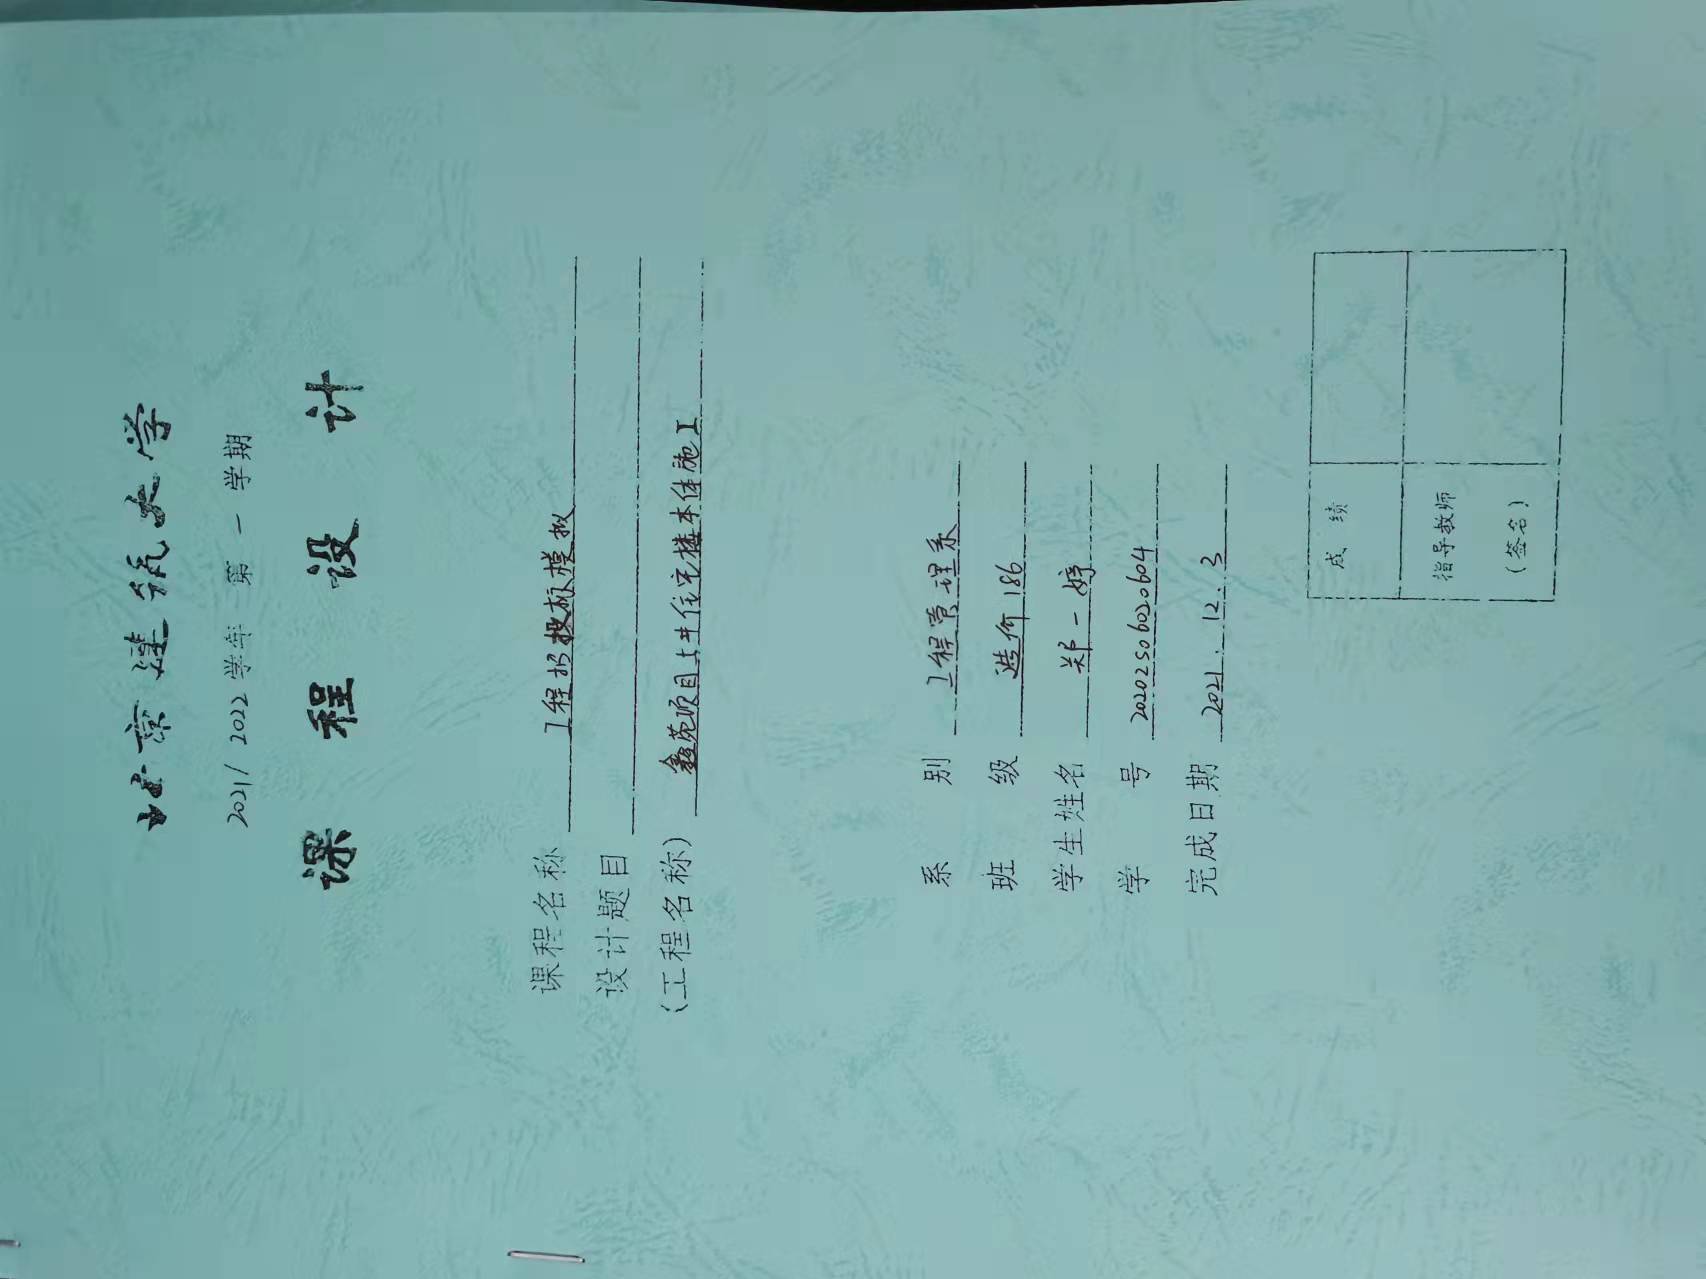 北京建筑大学
2021/2022学年 第一学期
课程设计
课程名称 工程招投标模拟
设计题目
(工程名称) 鑫苑项目上井住宅楼本体施工
系别 工程管理系
班级 造价186
学生姓名 郑一婷
学号 20202506020604
完成日期 2021.12.3
成绩
指导教师
(签名)